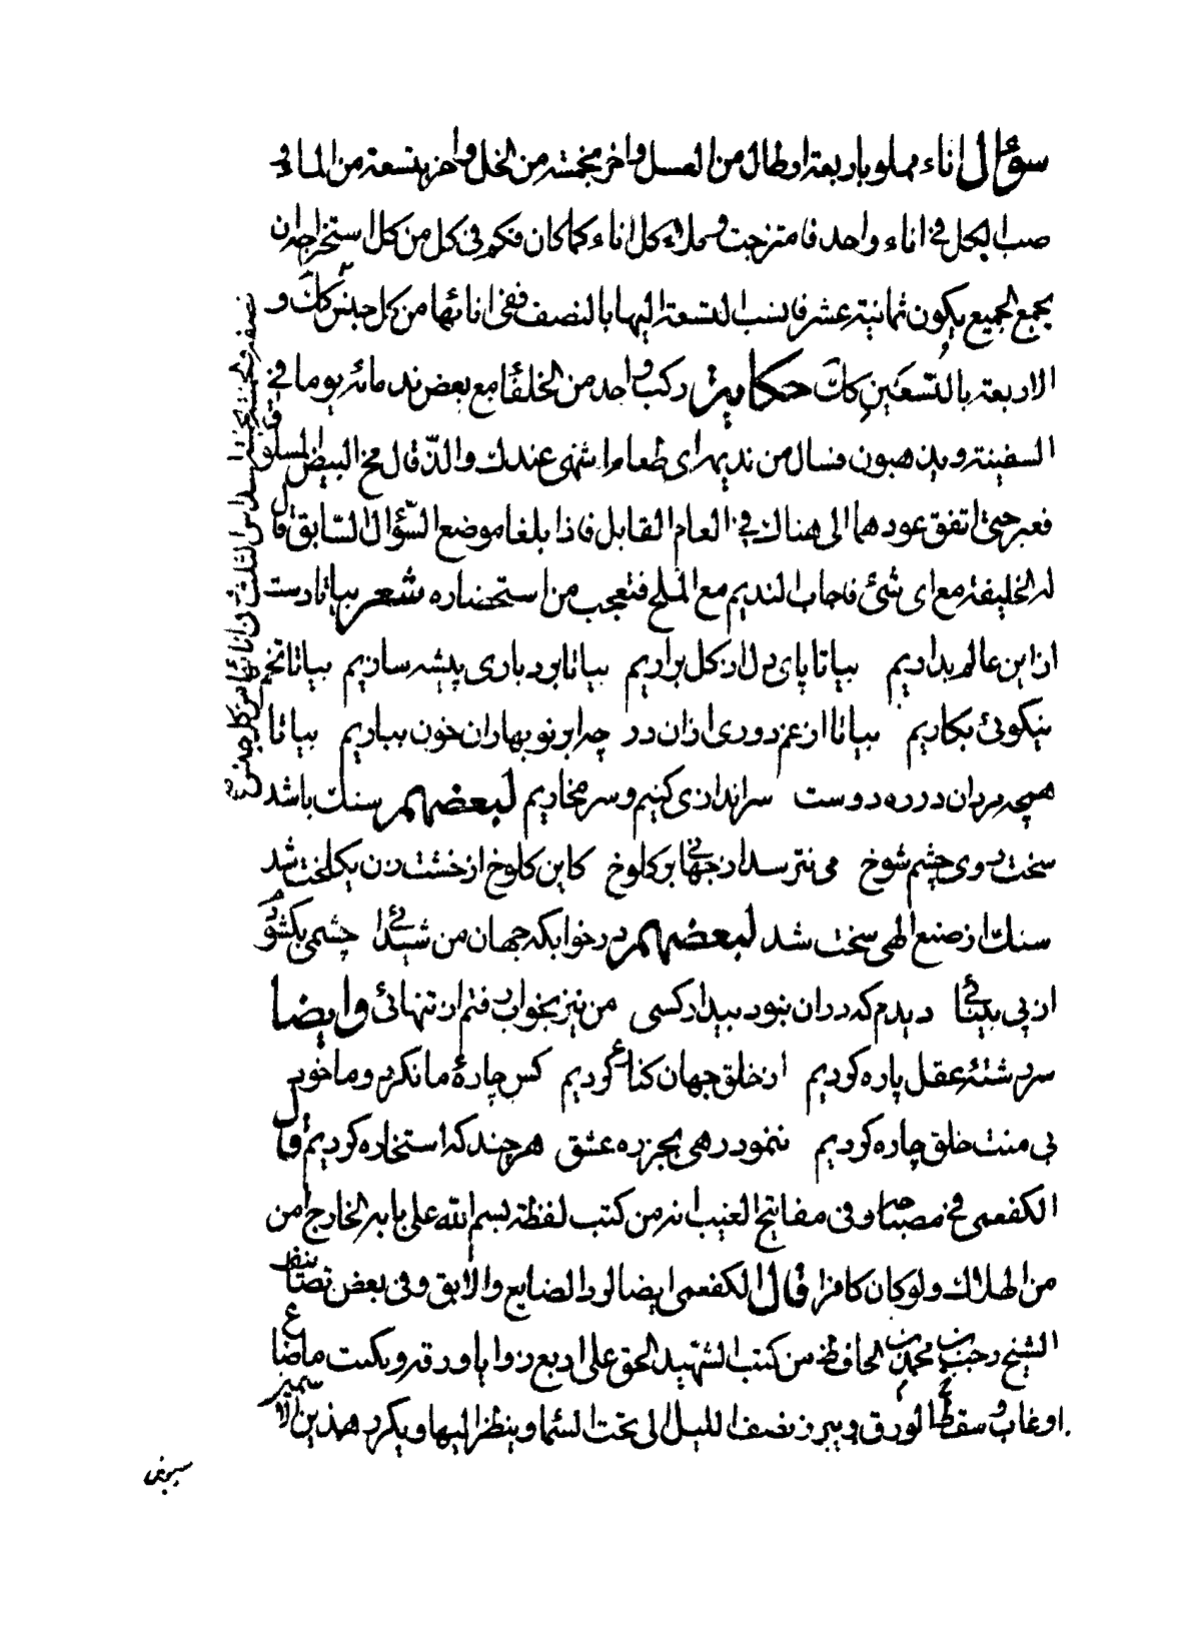 سؤال اناء مملو باربعة ارطال من العسل واخر بخمسة من الخل واخر بتسعة من الماء و
صب الكل في اناء واحد فامتزجت وملاء كل اناء كما كان فكم في كل من كل استخراجه ان
يجمع الجميع يكون ثمانية عشر فانسب التسعة اليها بالنصف ففي انائها من كل جنس كك و
الاربعة بالتسعين كك حكاية ركب واحد من الخلفا مع بعض ندمائه يوما في
السفينة ويذهبون فسال من نديمه اى طعام اشهى عندك والذ قال مخ البيض المسلوق
فعبر حتى اتفق عودهما الى هناك في العام القابل فاذا بلغا موضع السؤال السابق قال
له الخليفة مع اى شئ فاجاب النديم مع الملح فتعجب من استحضاره شعر بيا تا دست
ازاين عالم بداريم بيا تا پاى دل از كل براريم بيا تا بردبارى پيشه سازيم بيا تا تخم
نيكوئى بكاريم بيا تا از غم دورى ازان در چه ابر نوبهاران خون بباريم بيا تا
همچه مردان در ره دوست سراندازى كنيم و سر بخاريم لبعضهم سنك باشد
سخت روى چشم شوخ مى نترسد از جهانى بر كلوخ كاين كلوخ از خشت زن يكلخت شد
سنك از صنع الهى سخت شد لبعضهم در خوابكه جهان من شيدائى چشمى بكشود
از پى بينائى ديدم كه دران نبود بيدار كسى من نيز بخواب رفتم از تنهائى وايضا
سر رشته عقل پاره كرديم از خلق جهان كناره كرديم كس چاره ما نكرد و ما خود
بى منت خلق چاره كرديم ننمود رهى بجز ره عشق هر چند كه استخاره كرديم قال
الكفعمى في مصباحه وفى مفاتيح الغيب انه من كتب لفظة بسم الله على بابه الخارج امن
من الهلاك ولو كان كافرا قال الكفعمى ايضا لرد الضايع والابق وفى بعض تصانيف
الشيخ رجب بن محمد بن الحافظ من كتب الشهيد الحق على اربع زوايا ورقة ويكتب ما ضاع
او غاب وسط الورق ويبرز نصف الليل الى تحت السماء وينظر اليها ويكرر هذين الاسمين
سبعين